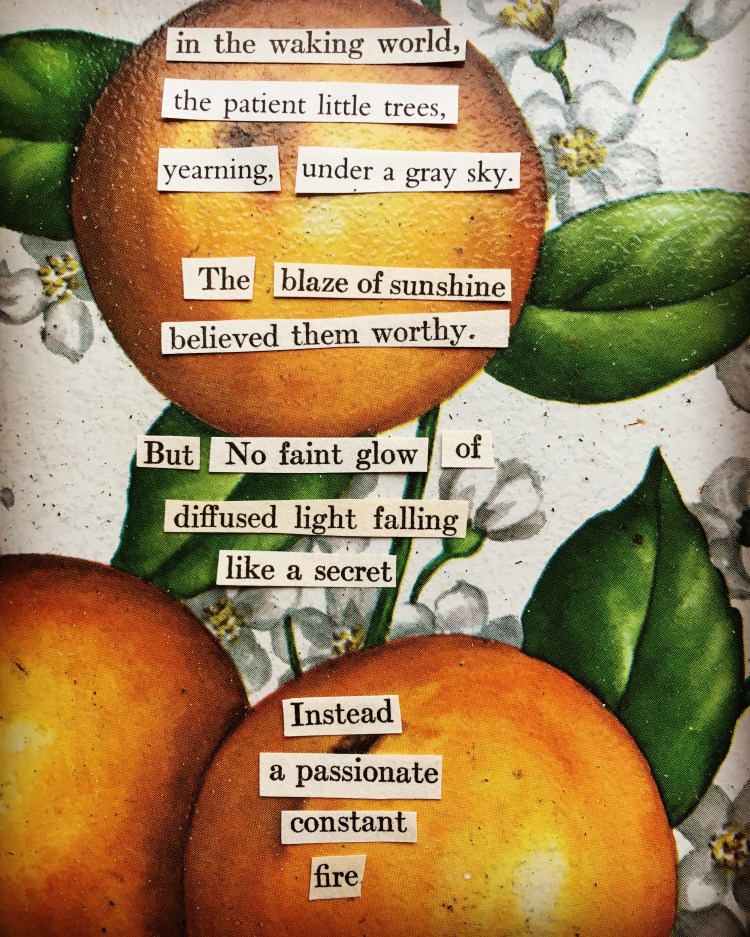 in the waking world,
the patient little trees,
yearning, under a gray sky.
The blaze of sunshine
believed them worthy.
But No faint glow of
diffused light falling
like a secret
Instead
a passionate
constant
fire